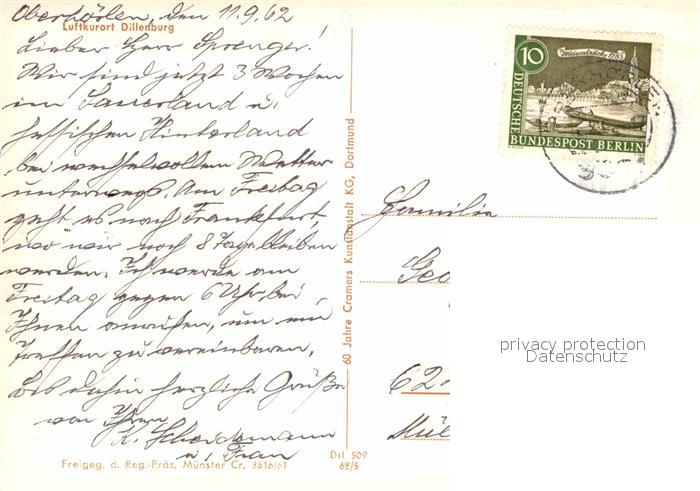 Oberhörlen, den 11.9.62
Luftkurort Dillenburg
Lieber Herr Sprenger!
Wir sind jetzt 3 Wochen
im Sauerland u.
hessischen Hinterland
bei wechselvollem Wetter
unterwegs. Am Freitag
geht es nach Frankfurt,
wo wir noch 8 Tage bleiben
werden. Ich werde am
Freitag gegen 6 Uhr bei
Ihnen anrufen, um ein
Treffen zu vereinbaren.
Bis dahin herzliche Grüße
von Ihren
K.
u. Frau
Freigeg. d. Reg.-Präs. Münster Cr. 3616/61
Dil 509
62/5
60 Jahre Cramers Kunstanstalt KG, Dortmund
10
Waisenbrücke 1783
DEUTSCHE
BUNDESPOST BERLIN
Familie
Geo
62
Mül
privacy protection
Datenschutz